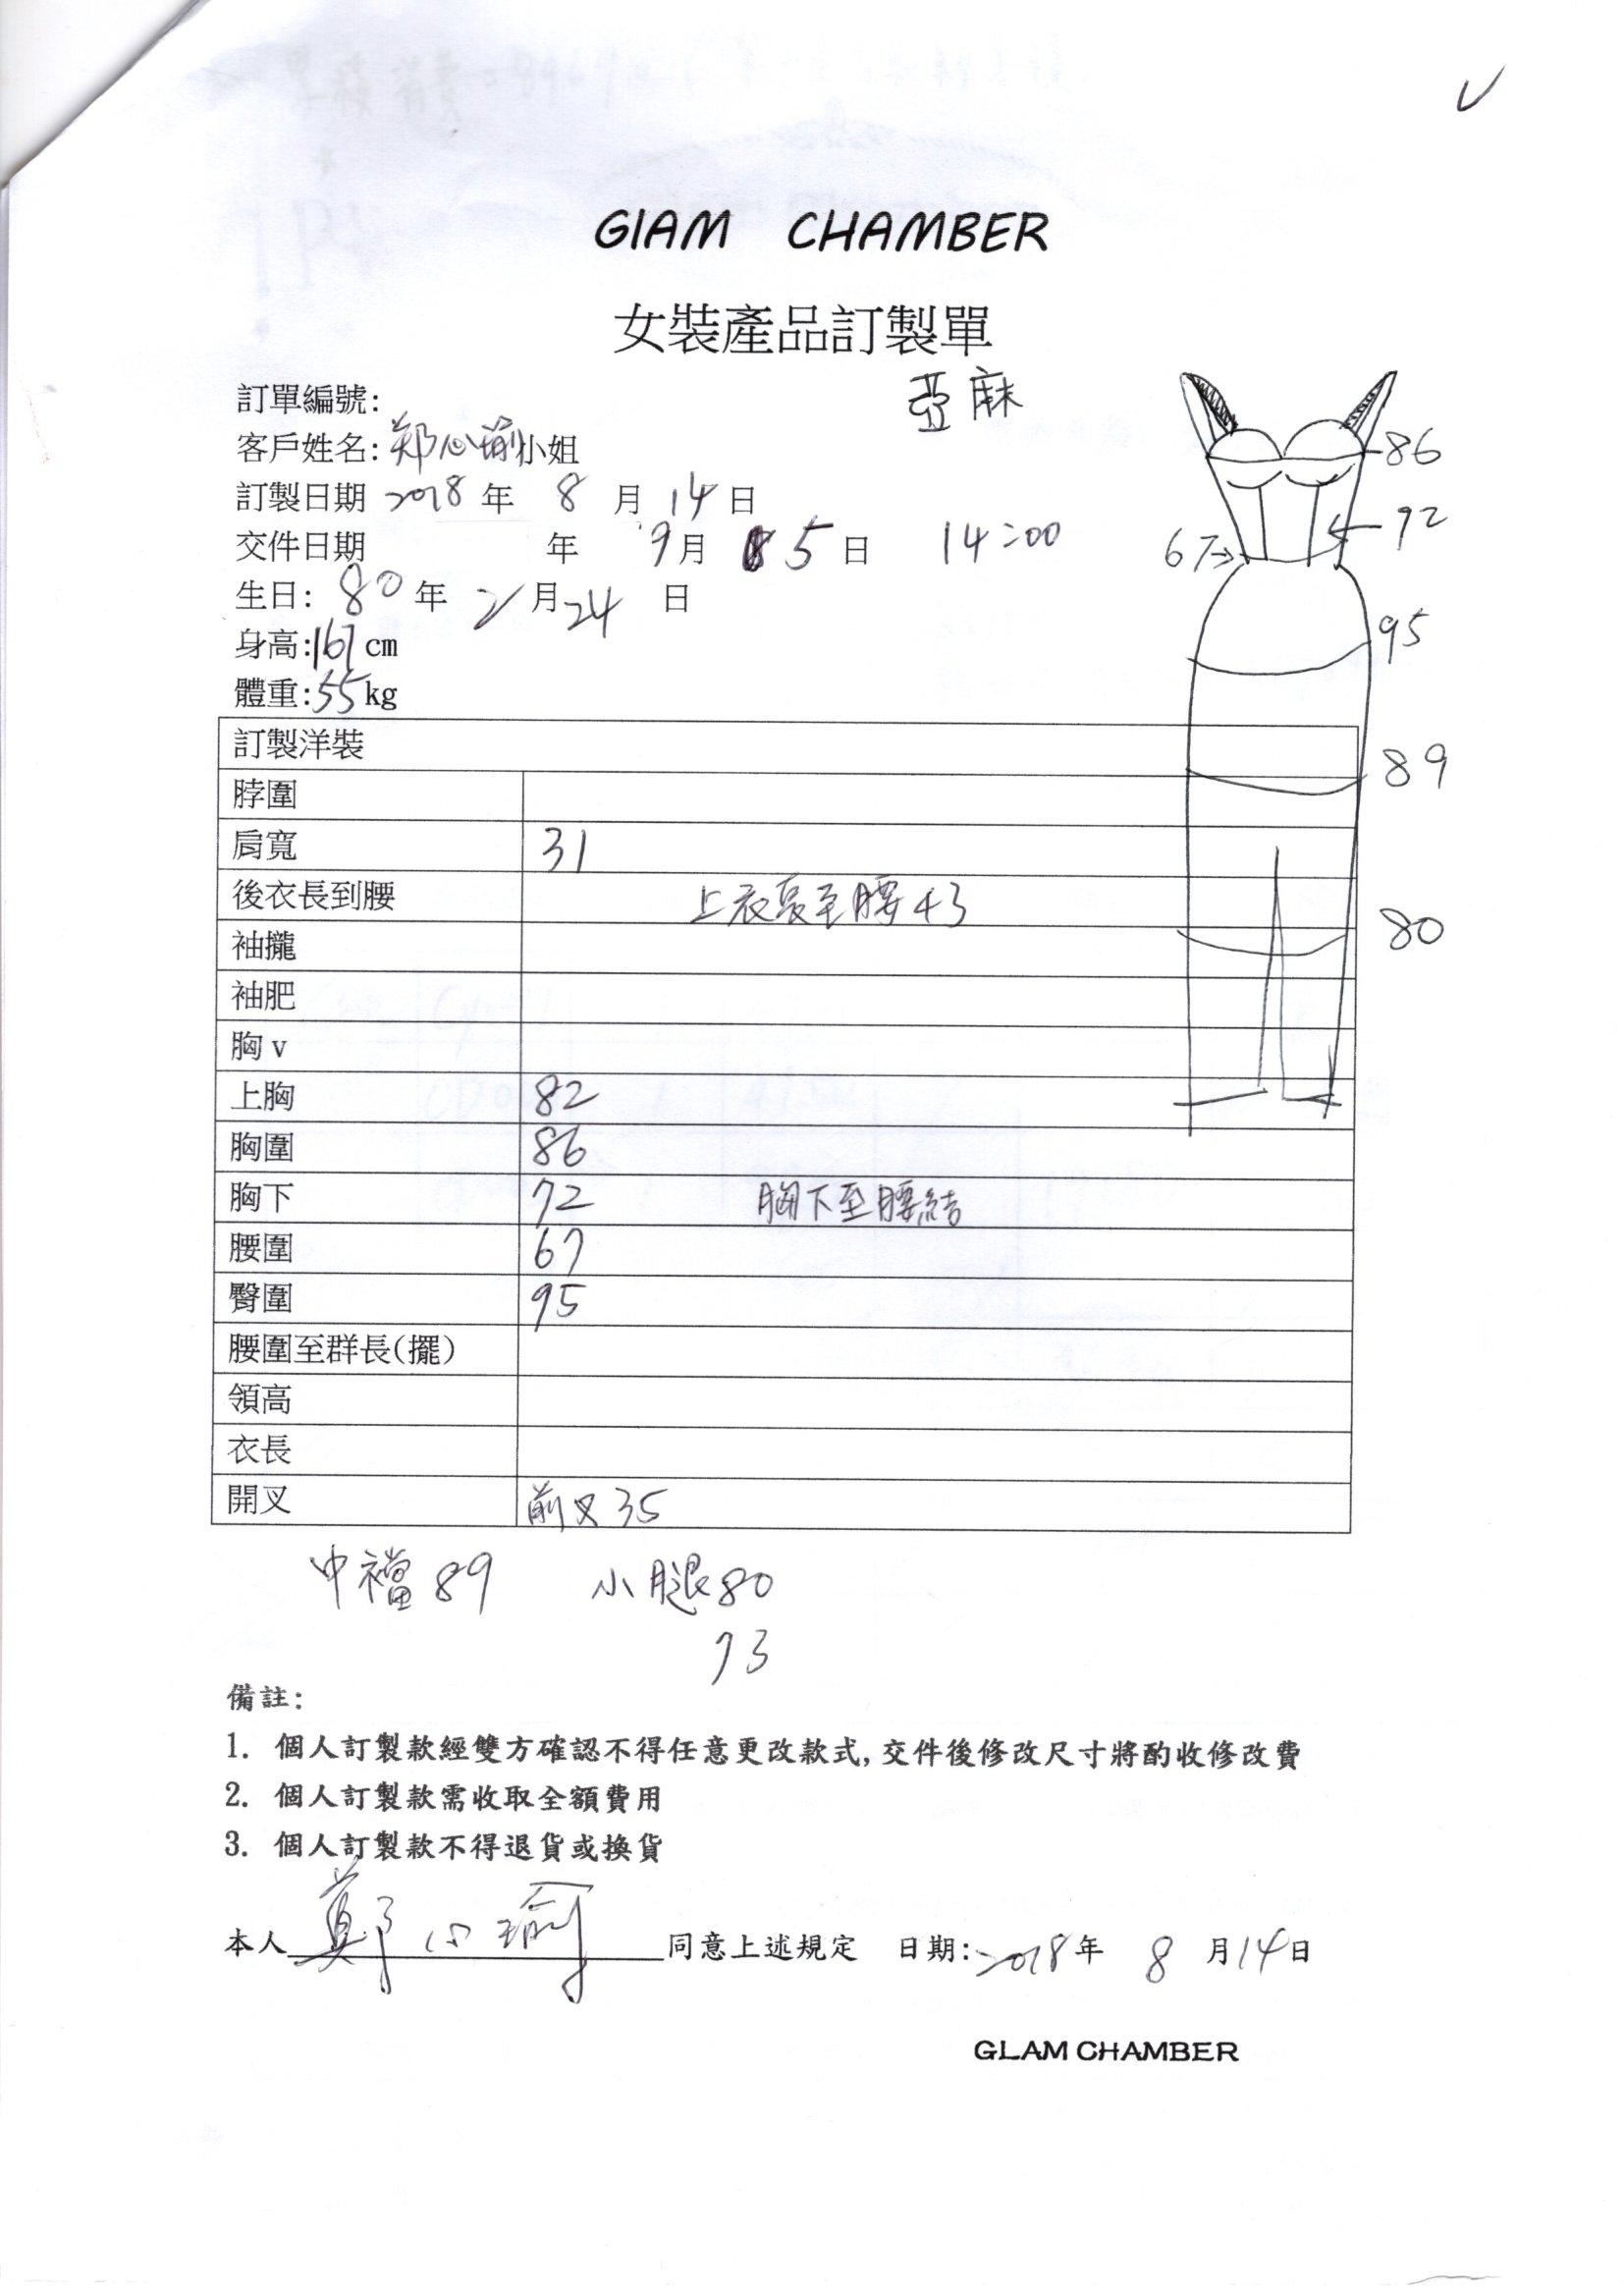 GIAM CHAMBER
女裝產品訂製單
亞麻
訂單編號:
客戶姓名: 郑心瑜小姐
訂製日期 2018 年 8 月 14 日
交件日期 年 9月 5日 14:00
生日: 80年 2月24 日
身高:167cm
體重:55kg
86
72
67
95
89
80
訂製洋裝
脖圍
肩寬 31
後衣長到腰 上衣長至腰43
袖攏
袖肥
胸v
上胸 82
胸圍 86
胸下 72 胸下至腰結
腰圍 67
臀圍 95
腰圍至群長(擺)
領高
衣長
開叉 前叉35
中襠89 小腿80
73
備註:
1. 個人訂製款經雙方確認不得任意更改款式,交件後修改尺寸將酌收修改費
2. 個人訂製款需收取全額費用
3. 個人訂製款不得退貨或換貨
本人 鄭心瑜 同意上述規定 日期:2018年 8 月14日
GLAM CHAMBER